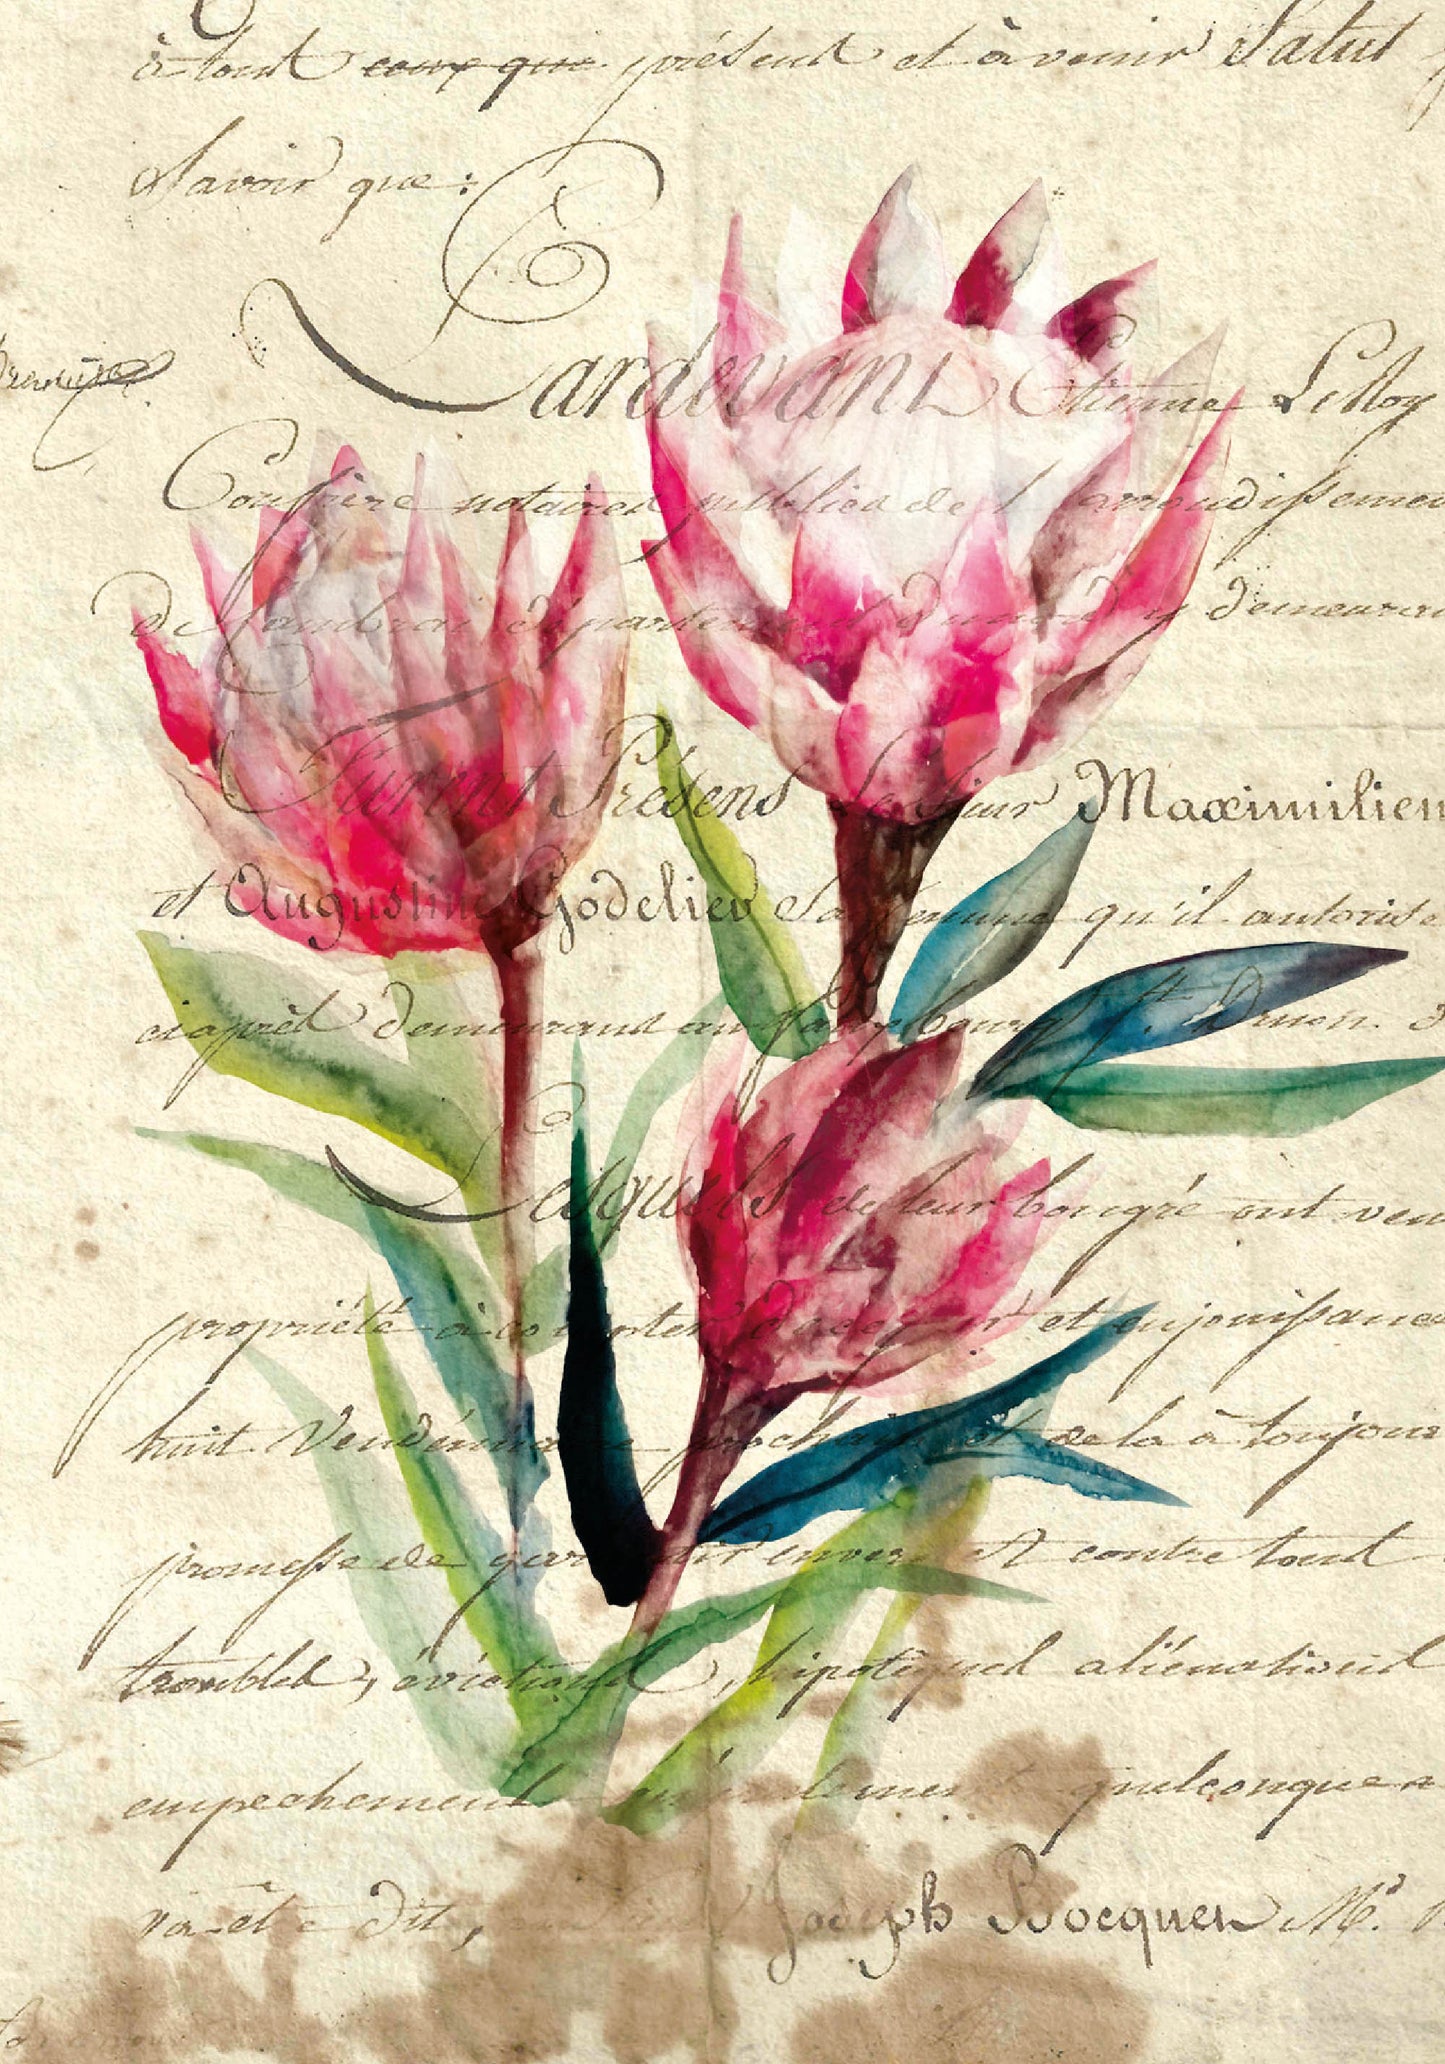 à tous ceux que présens et à venir Salut
Savoir que:
Pardevant Etienne LeRoy
notaires publics de l'arrondissemen
De Cambrai département du nord y demeuran
Furent Présens Le Sieur Maximilien
et Augustine Godelier Sa femme qu'il autorise
ci après demeurans au fauxbourg St. Druon.
Lesquels de leur bongré ont ven
propriété à compter et enjouissance
huit Vendémiaire prochain et de la à toujours
promesse de garantir envers et contre tous
troubles, évictions, hipotêques aliénations
empechemens généralement quelconques a
Joseph Bocquer Md.